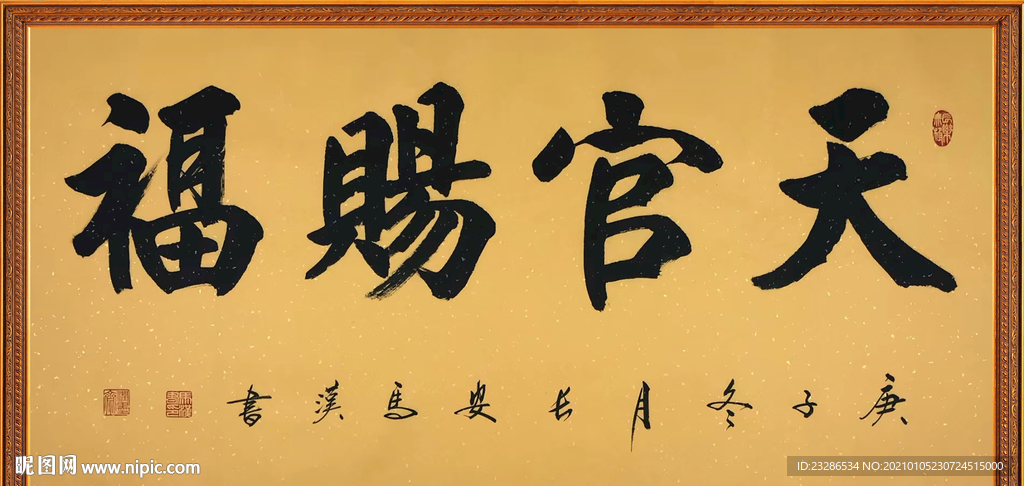 天官賜福
庚子冬月长安馬漢書
昵图网 www.nipic.com
ID:23286534 NO:20210105230724515000